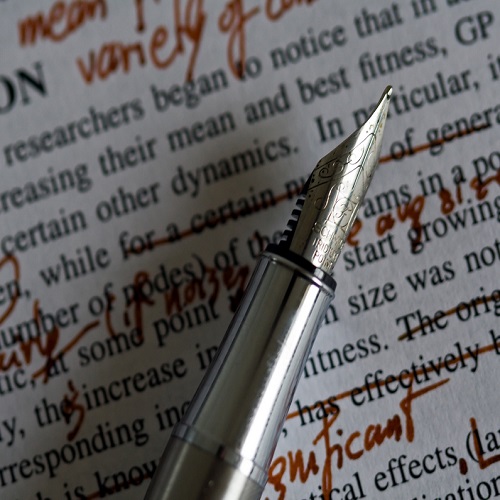 mean
variety of
ON
researchers began to notice that in
creasing their mean and best fitness, GP
certain other dynamics. In particular, it
en, while for a certain of genera
number of nodes) of the ams in a po
avg size
(if noise
start growing
tic, at some point in size was not
y, the increase in fitness. The orig
rresponding in has effectively b
significant
h is know ical effects (Lan
motion